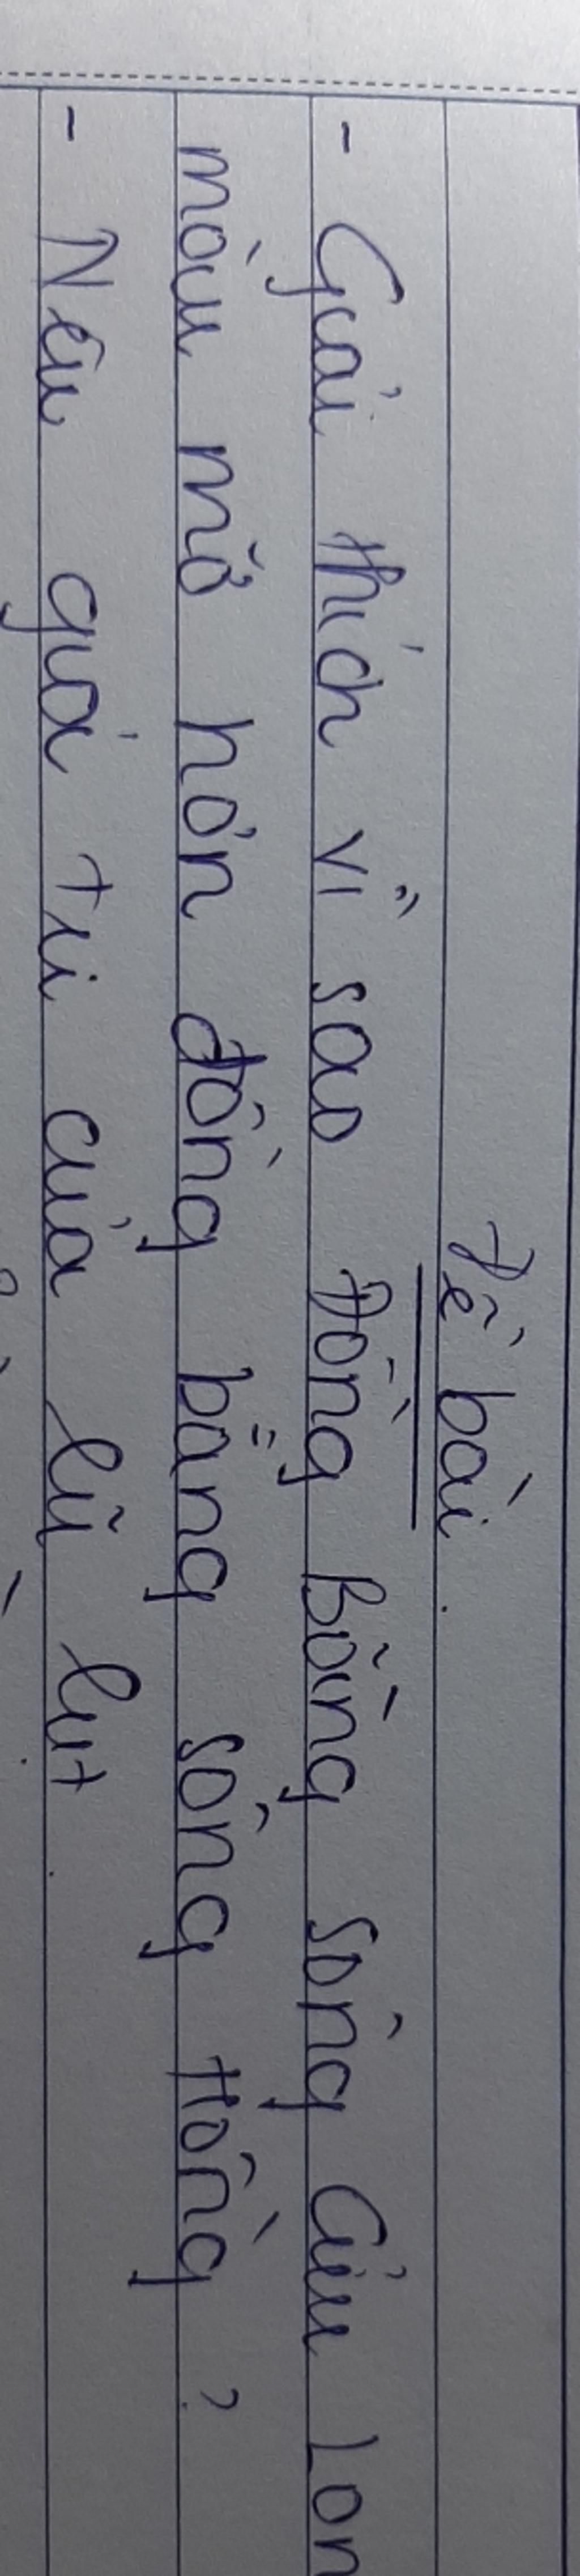 Đề bài.
- Giải thích vì sao Đồng Bằng sông Cửu Lon
màu mỡ hơn đồng bằng sông Hồng ?
- Nêu giá trị của lũ lụt.